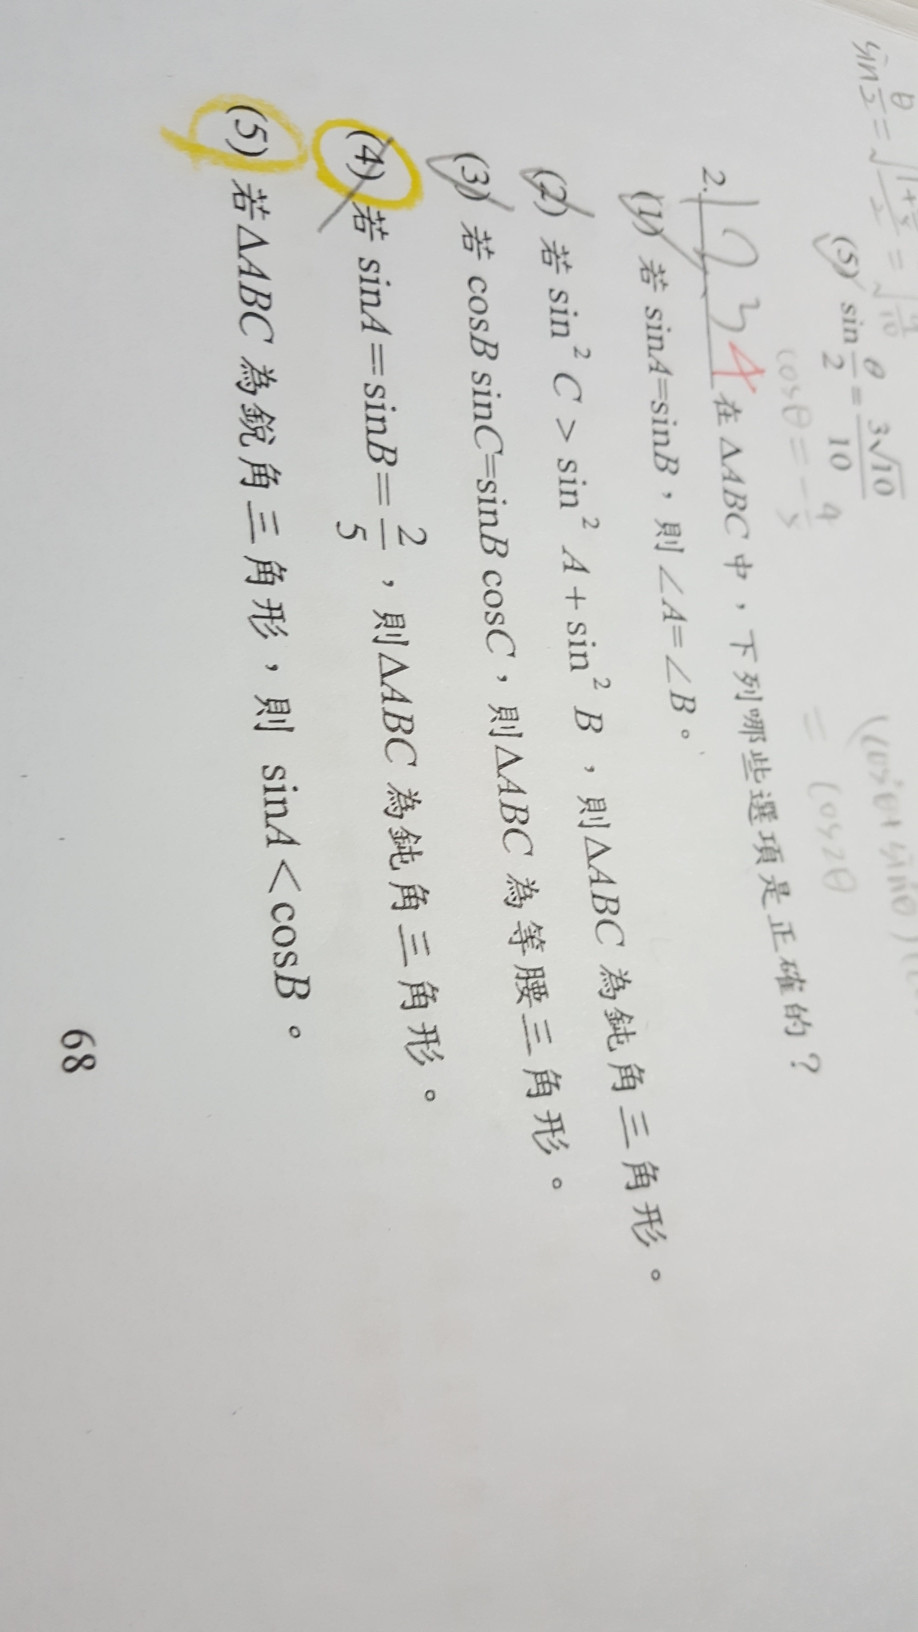 sin θ/2 = √(1+4/5 / 2) = √(1/10)
(5) sin θ/2 = 3√10/10
cosθ = -4/5
(cos²θ+sin²θ)(
= cos2θ
2. 1 2 3 4 在 ΔABC 中，下列哪些選項是正確的？
(1) 若 sinA=sinB，則∠A=∠B。
(2) 若 sin²C＞sin²A＋sin²B，則ΔABC 為鈍角三角形。
(3) 若 cosB sinC=sinB cosC，則ΔABC 為等腰三角形。
(4) 若 sinA＝sinB＝2/5，則ΔABC 為鈍角三角形。
(5) 若ΔABC 為銳角三角形，則 sinA＜cosB。
68